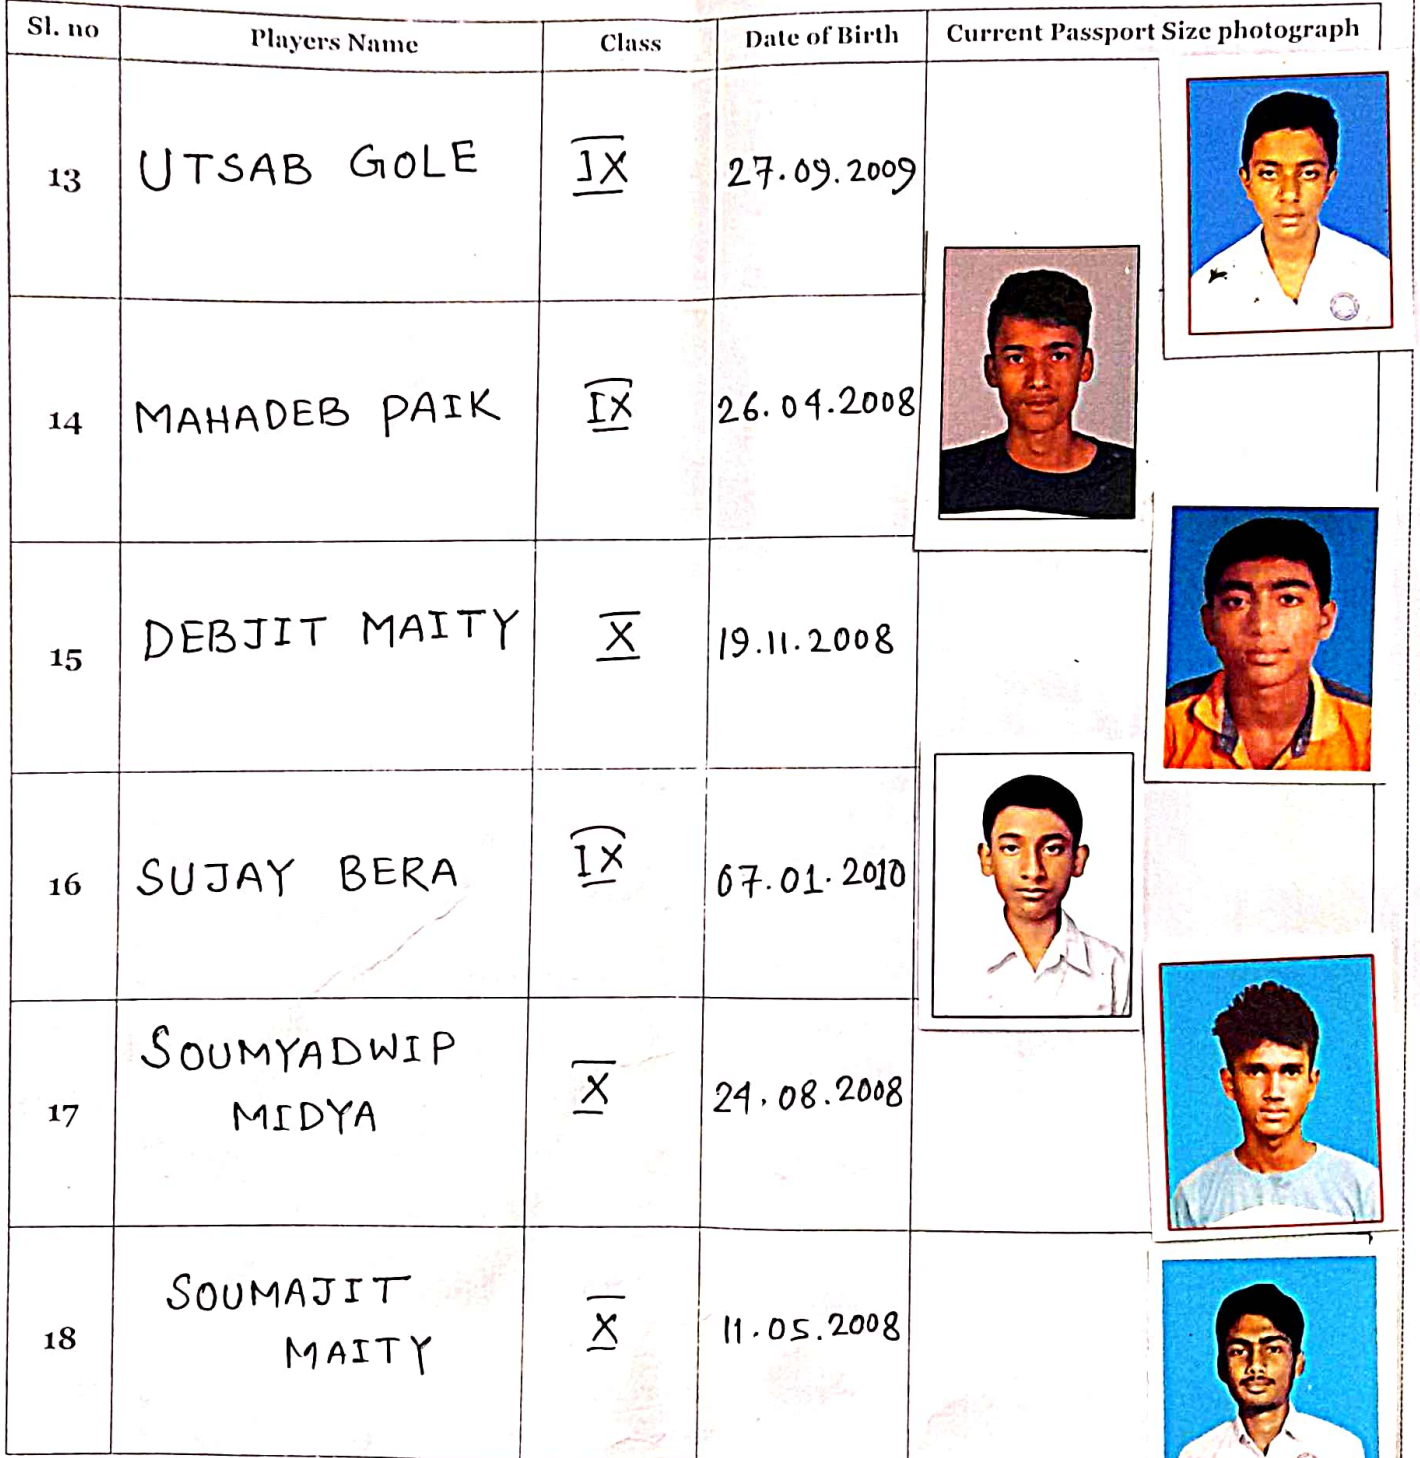 Sl. no Players Name Class Date of Birth Current Passport Size photograph
13 UTSAB GOLE IX 27.09.2009
14 MAHADEB PAIK IX 26.04.2008
15 DEBJIT MAITY X 19.11.2008
16 SUJAY BERA IX 07.01.2010
SOUMYADWIP
17 MIDYA X 24.08.2008
SOUMAJIT
18 MAITY X 11.05.2008